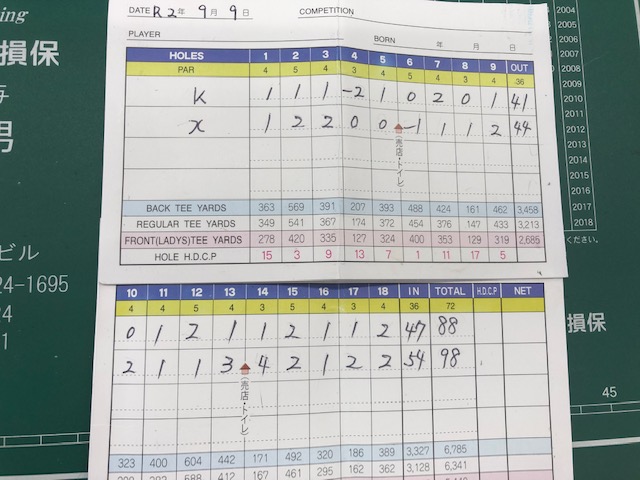 DATE R2年 9月 9日 COMPETITION
PLAYER BORN 年 月 日
HOLES 1 2 3 4 5 6 7 8 9 OUT
PAR 4 5 4 3 4 5 4 3 4 36
K 1 1 1 -2 1 0 2 0 1 41
x 1 2 2 0 0 -1 1 1 2 44
(売店・トイレ)
BACK TEE YARDS 363 569 391 207 393 488 424 161 462 3,458
REGULAR TEE YARDS 349 541 367 174 372 454 376 147 433 3,213
FRONT(LADYS)TEE YARDS 278 420 335 127 324 400 353 129 319 2,685
HOLE H.D.C.P 15 3 9 13 7 1 11 17 5
10 11 12 13 14 15 16 17 18 IN TOTAL H.D.C.P NET
4 4 5 4 3 5 4 3 4 36 72
0 1 2 1 1 2 1 1 2 47 88
2 1 1 3 4 2 1 2 2 54 98
(売店・トイレ)
323 400 604 442 171 492 320 186 389 3,327 6,785
412 167 461 295 162 362 3,128 6,341
ing
損保
男
ビル
24-1695
34
1
2004
2005
2006
2007
2008
2009
2010
2011
2012
2013
2014
2015
2016
2017
2018
ください。
損保
45